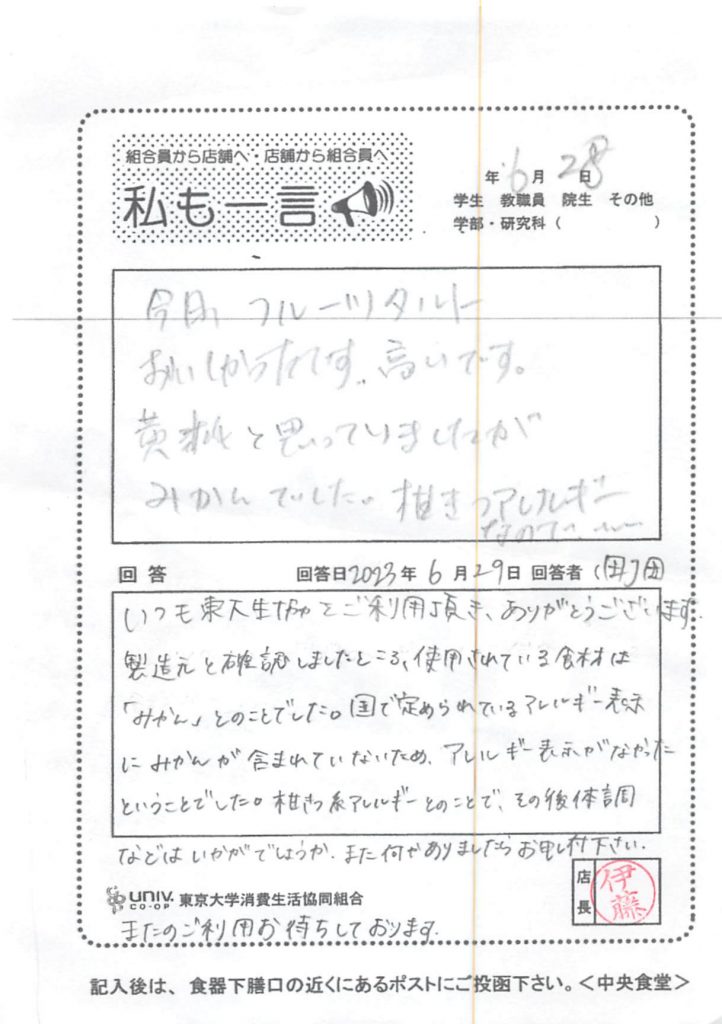 組合員から店舗へ・店舗から組合員へ
私も一言
年 6月 28日
学生 教職員 院生 その他
学部・研究科（ ）
今日、フルーツタルト
おいしかったです。高いです。
黄桃と思っていましたが
みかんでした。柑きつアレルギー
なので、
回答 回答日2023年6月29日 回答者（
いつも東大生協をご利用頂き、ありがとうございます。
製造元を確認しましたところ、使用されている食材は
「みかん」とのことでした。国で定められているアレルギー表示
にみかんが含まれていないため、アレルギー表示がなかった
ということでした。柑きつ系アレルギーとのことで、その後体調
などはいかがでしょうか。また何かありましたらお申し付下さい。
店長 伊藤
UNIV. CO-OP 東京大学消費生活協同組合
またのご利用お待ちしております。
記入後は、食器下膳口の近くにあるポストにご投函下さい。＜中央食堂＞